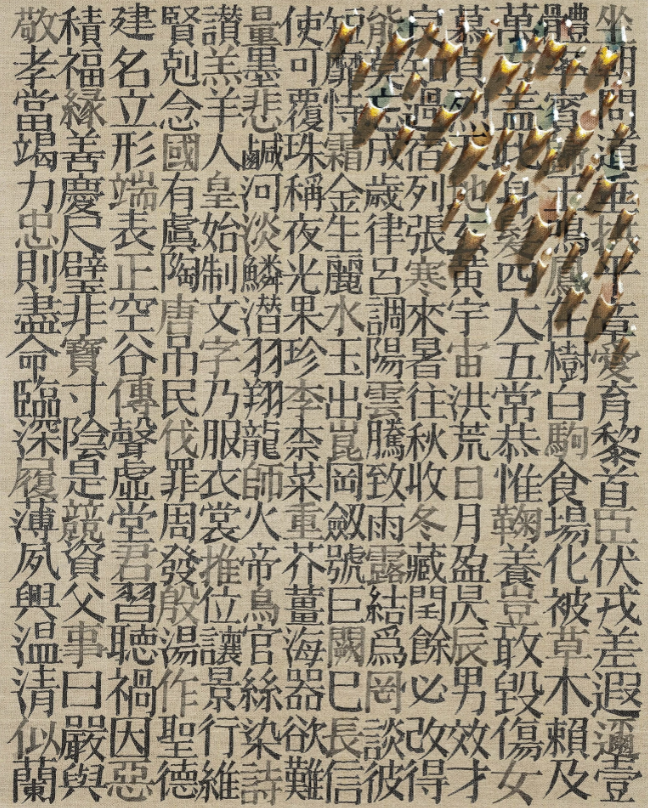 坐朝問道垂拱平章愛育黎首臣伏戎羌遐邇壹
體率賓歸王鳴鳳在樹白駒食場化被草木賴及
萬方蓋此身髮四大五常恭惟鞠養豈敢毀傷女
慕貞烈天地玄黃宇宙洪荒日月盈昃辰男效才
良知過宿列張寒來暑往秋收冬藏閏餘必改得
能莫忘成歲律呂調陽雲騰致雨露結爲罔談彼
短靡恃霜金生麗水玉出崑岡劒號巨闕巳長信
使可覆珠稱夜光果珍李柰菜重芥薑海器欲難
量墨悲鹹河淡鱗潛羽翔龍師火帝鳥官絲染詩
讚羔羊人皇始制文字乃服衣裳推位讓景行維
賢剋念國有虞陶唐吊民伐罪周發殷湯作聖德
建名立形端表正空谷傳聲虛堂君習聽禍因惡
積福緣善慶尺璧非寶寸陰是競資父事曰嚴與
敬孝當竭力忠則盡命臨深履薄夙興溫清似蘭